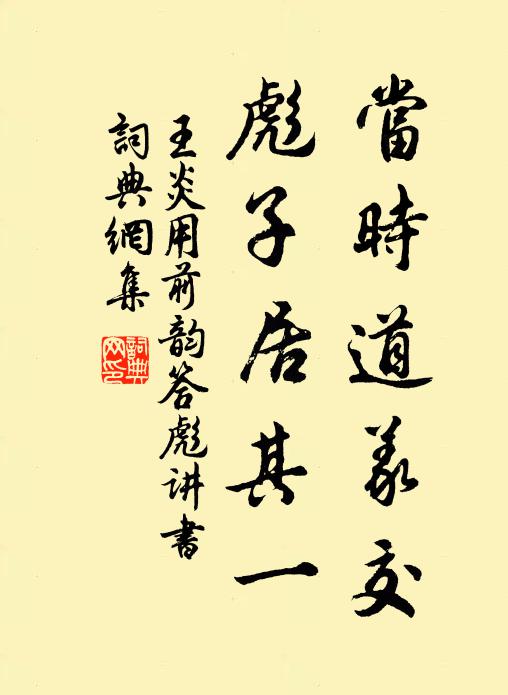 當時道義交
彪子居其一
王炎用前韵答彪讲書
詞典網集
詞典网印